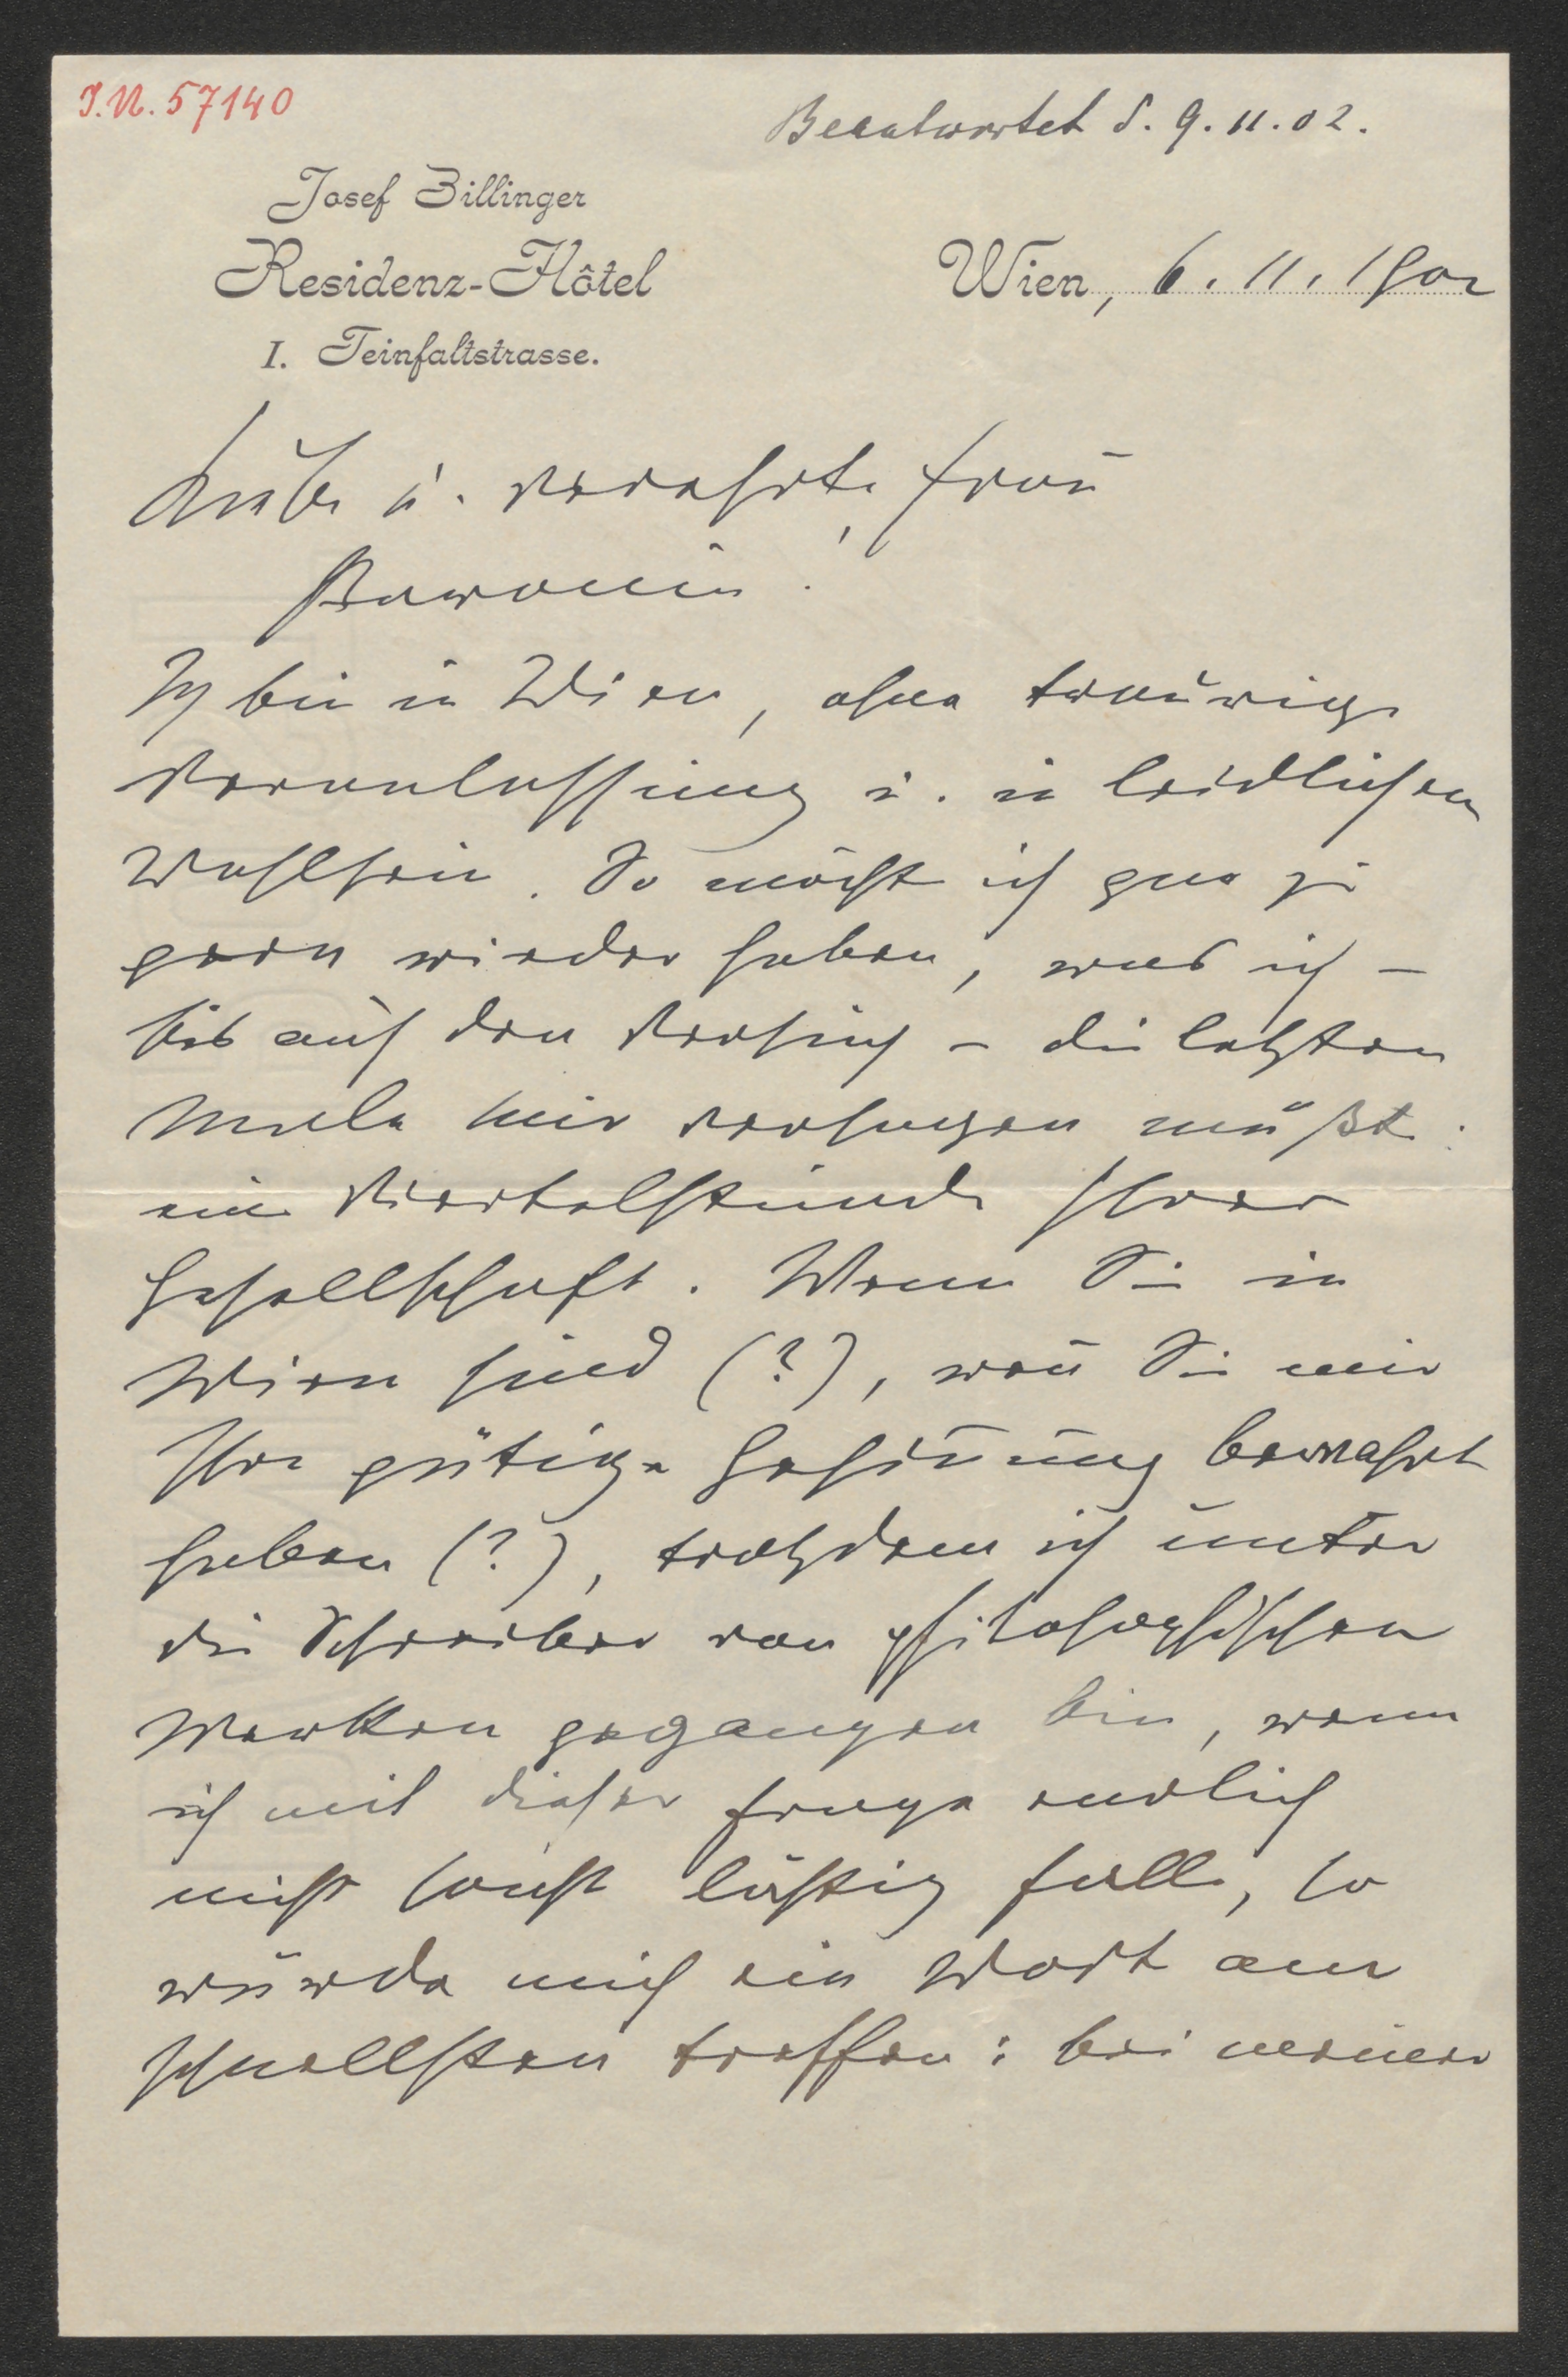 I.N. 57140
Beantwortet d. 9.11.02.
Josef Zillinger
Residenz-Hôtel
Wien, 6. 11. 1902
I. Teinfaltstrasse.
Liebe u. verehrte Frau
Baronin!
Ich bin in Wien, ohne traurige
Veranlassung u. in leidlichem
Wohlsein. So möcht ich gar zu
gern wieder haben, was ich –
bis auf den Versuch – die letzten
Male mir versagen mußte:
eine Viertelstunde Ihrer
Gesellschaft. Wenn Sie in
Wien sind (?), wen̄ Sie mir
Ihre gütige Gesin̄ung bewahrt
haben (?), trotzdem ich unter
die Schreiber von philosophischen
Werken gegangen bin, wenn
ich mit dieser Frage endlich
nicht sonst lästig falle, so
würde mich ein Wort am
schnellsten treffen: bei meiner